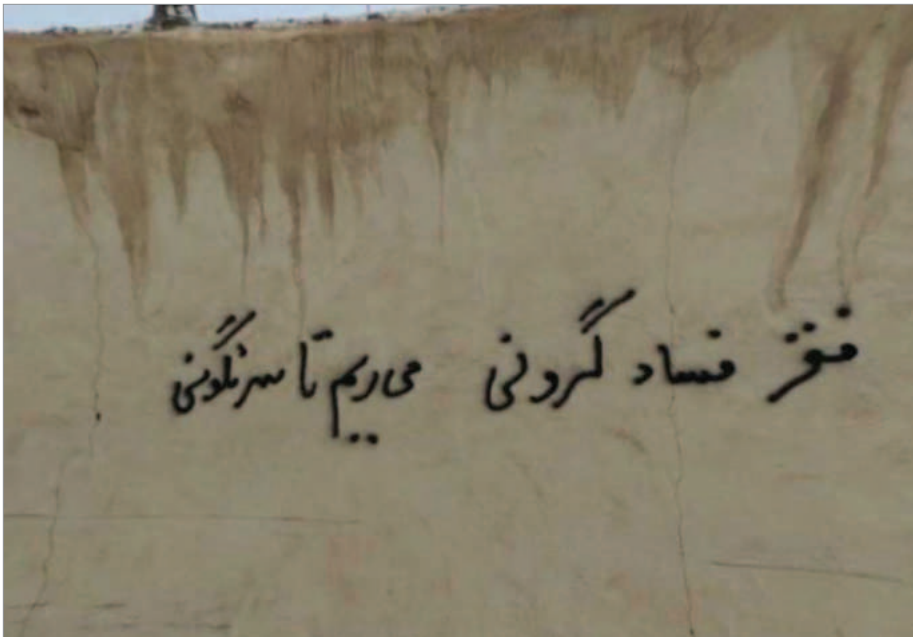 فقر فساد گرونی می ریم تا سرنگونی